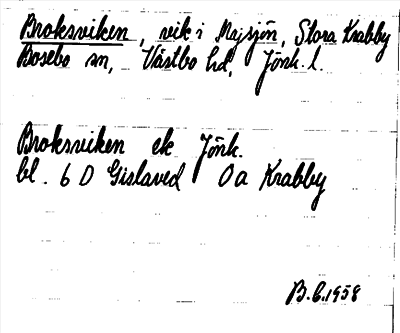 Broksviken, vik i Majsjön, Stora Krabby
Bosebo sn, Västbo hd, Jönk. l.
Broksviken ek Jönk.
bl. 6 D Gislaved 0a Krabby
B.G.1958